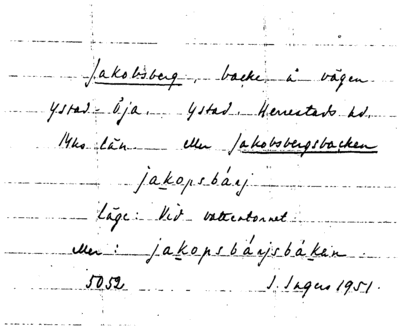 Jakobsberg, backe å vägen
Ystad - Öja. Ystad. Herrestads hd.
Mhs län. eller Jakobsbergsbacken
jakopsbárj
läge: Vid vattentornet.
eller: jakopsbárjsbákan.
5052 I. Ingers 1951.